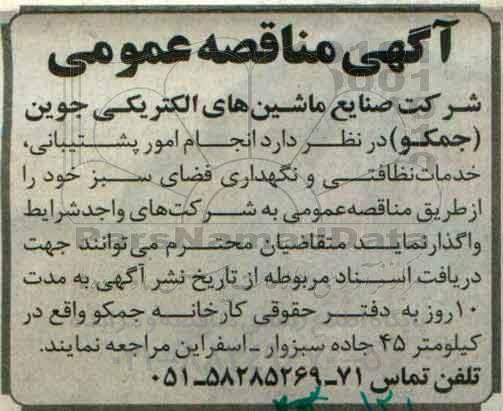 آگهی مناقصه عمومی
شرکت صنایع ماشین های الکتریکی جوین
(جمکو) در نظر دارد انجام امور پشتیبانی،
خدمات نظافتی و نگهداری فضای سبز خود را
از طریق مناقصه عمومی به شرکت های واجد شرایط
واگذار نماید متقاضیان محترم می توانند جهت
دریافت اسناد مربوطه از تاریخ نشر آگهی به مدت
۱۰ روز به دفتر حقوقی کارخانه جمکو واقع در
کیلومتر ۴۵ جاده سبزوار - اسفراین مراجعه نمایند.
تلفن تماس ۷۱-۵۸۲۸۵۲۶۹-۰۵۱
ParsNamadData